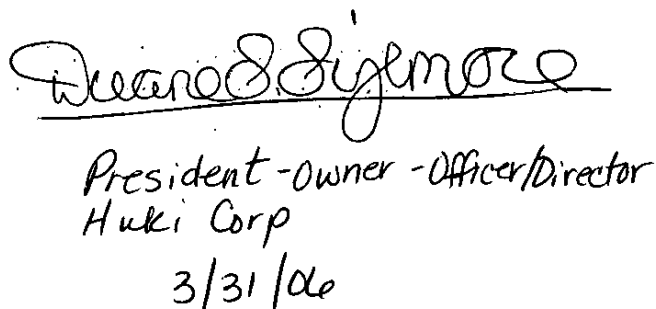 Duane S. Sizemore
President - Owner - Officer/Director
Huki Corp
3/31/06